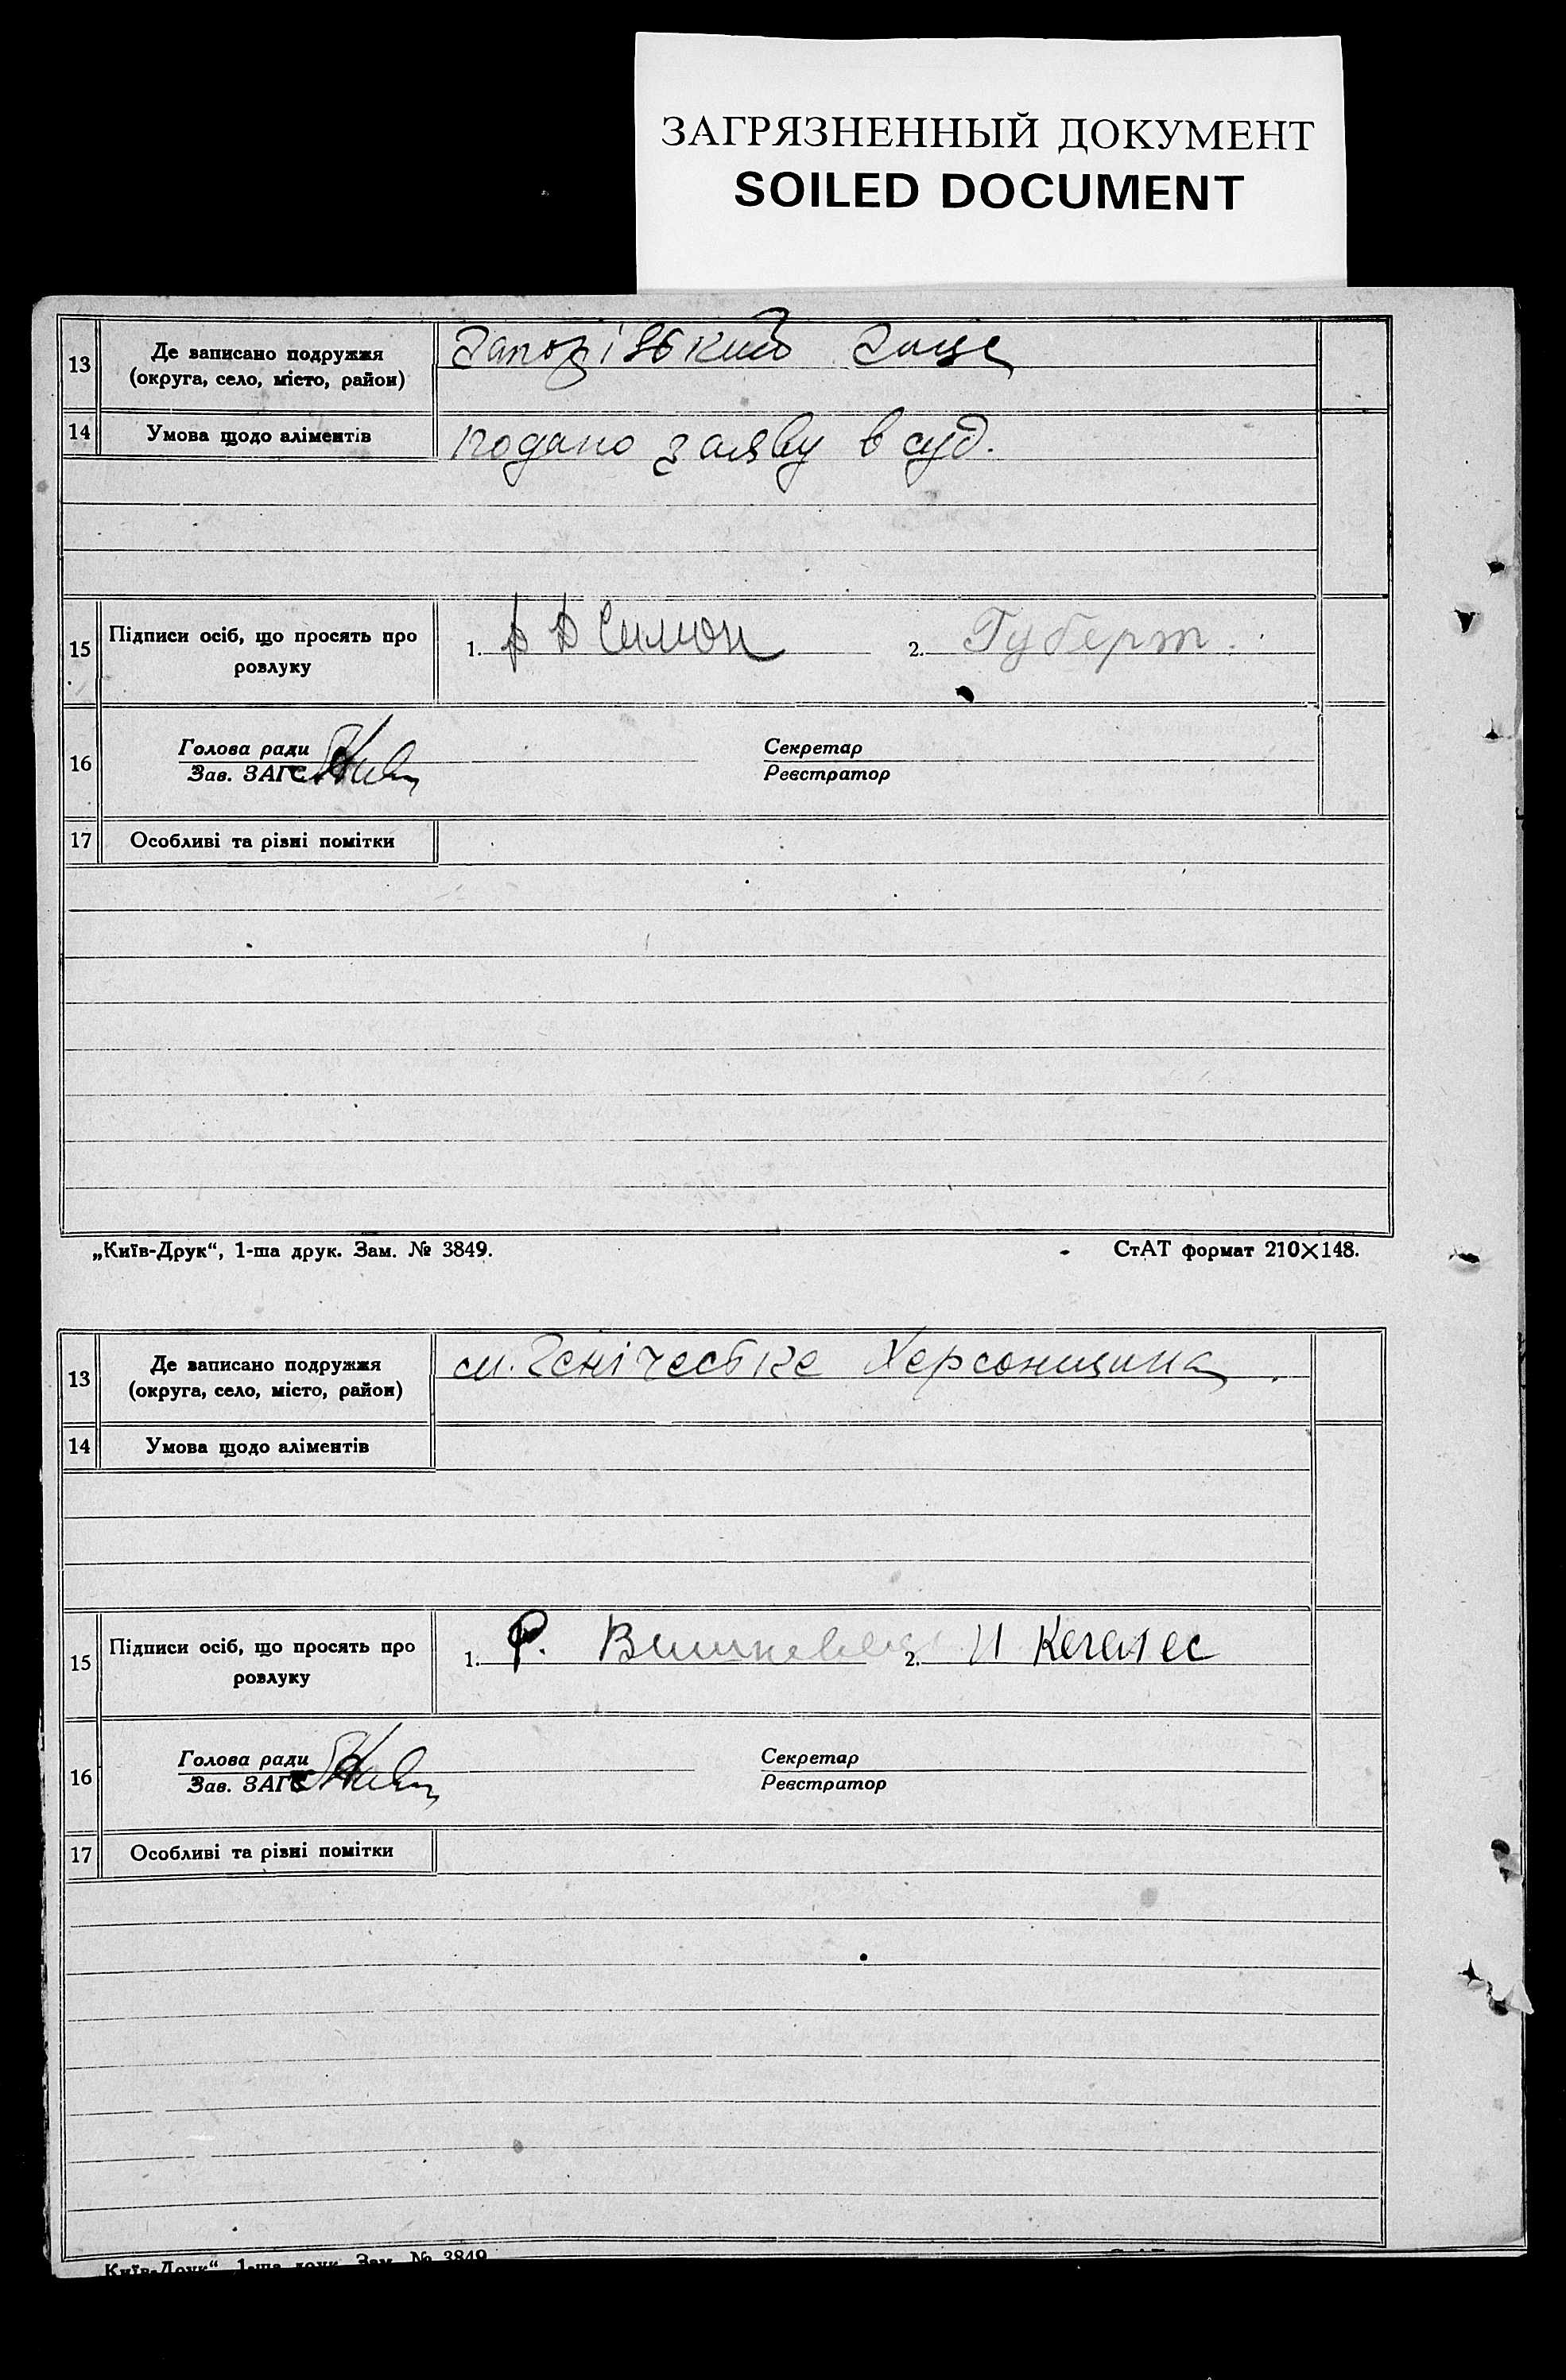 ЗАГРЯЗНЕННЫЙ ДОКУМЕНТ
SOILED DOCUMENT
13 Де записано подружжя
(округа, село, місто, район)
14 Умова щодо аліментів подано заяву в суд.
15 Підписи осіб, що просять про
розлуку
1. Симон 2. Губерт.
16 Голова ради Секретар
Зав. ЗАГС Реєстратор
17 Особливі та різні помітки
„Київ-Друк“, 1-ша друк. Зам. № 3849. СтАТ формат 210×148.
13 Де записано подружжя
(округа, село, місто, район)
Херсонщина
14 Умова щодо аліментів
15 Підписи осіб, що просять про
розлуку
1. Р. 2. И
16 Голова ради Секретар
Зав. ЗАГС Реєстратор
17 Особливі та різні помітки
Київ-Друк“, 1-ша друк. Зам. № 3849